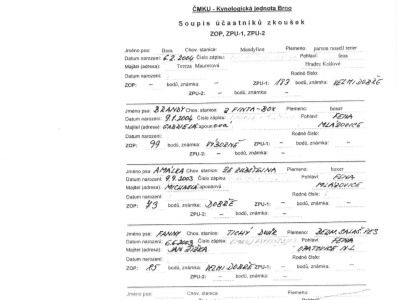 ČMKU - Kynologická jednota Brno
Soupis účastníků zkoušek
ZOP, ZPU-1, ZPU-2
Jméno psa: Chov. stanice: Plemeno: parson russell terier
Datum narození: 6.2.2004 Číslo zápisu: Pohlaví: fena
Majitel (adresa): Tereza Hradec Králové
Datum narození: Rodné číslo:
ZOP: – bodů, známka: – ZPU-1: 183 bodů, známka: VELMI DOBŘE
ZPU-2: – bodů, známka: –
Jméno psa: BRANDY Chov. stanice: Z FINTA-BOX Plemeno: boxer
Datum narození: 9.1.2004 Číslo zápisu: Pohlaví: FENA
Majitel (adresa): GABRIELA MLADOVICE
Rodné číslo:
ZOP: 99 bodů, známka: VÝBORNĚ ZPU-1: – bodů, známka: –
ZPU-2: – bodů, známka: –
Jméno psa: AMÁLKA Chov. stanice: Plemeno: boxer
Datum narození: 9.9.2003 Číslo zápisu: Pohlaví: FENA
Majitel (adresa): MICHAELA MLADOVICE
Rodné číslo:
ZOP: 73 bodů, známka: DOBŘE ZPU-1: – bodů, známka: –
ZPU-2: – bodů, známka: –
Jméno psa: FANNY Chov. stanice: TICHÝ DVŮR Plemeno: BERN. SALAŠ. PES
Datum narození: 6.6.2003 Číslo zápisu: Pohlaví: FENA
Majitel (adresa): JAN ŽIŽKA OPATOVICE N.L.
Datum narození: Rodné číslo:
ZOP: 85 bodů, známka: VELMI DOBŘE ZPU-1: – bodů, známka: –
ZPU-2: – bodů, známka: –
Jméno psa: Chov. stanice: Plemeno: